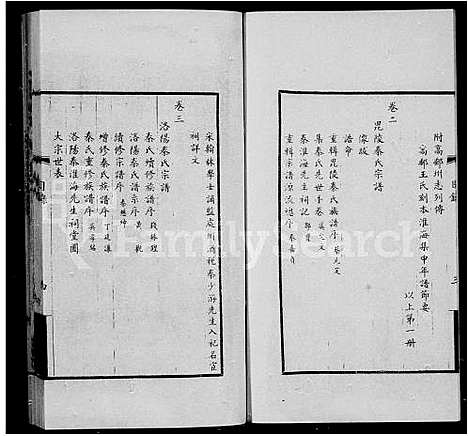 附高郵州志列傳
高郵王氏刻本淮海集中年譜節要
以上第一冊
卷二
毘陵秦氏宗譜
像放
誥命
重輯毘陵秦氏族譜序
集秦氏先世手卷
秦淮海先生祠記
重輯宗譜源流總序
三
宋翰林學士
處州
祀秦少游先生入祀名宦
祠詳文
卷三
洛陽秦氏宗譜
秦氏續修族譜序
洛陽秦氏譜宗序
續修宗譜序
增修秦氏族譜序 丁廷讓
秦氏重修族譜序
洛陽秦淮海先生祠堂圖
大宗世表
目錄
四
FamilySearch